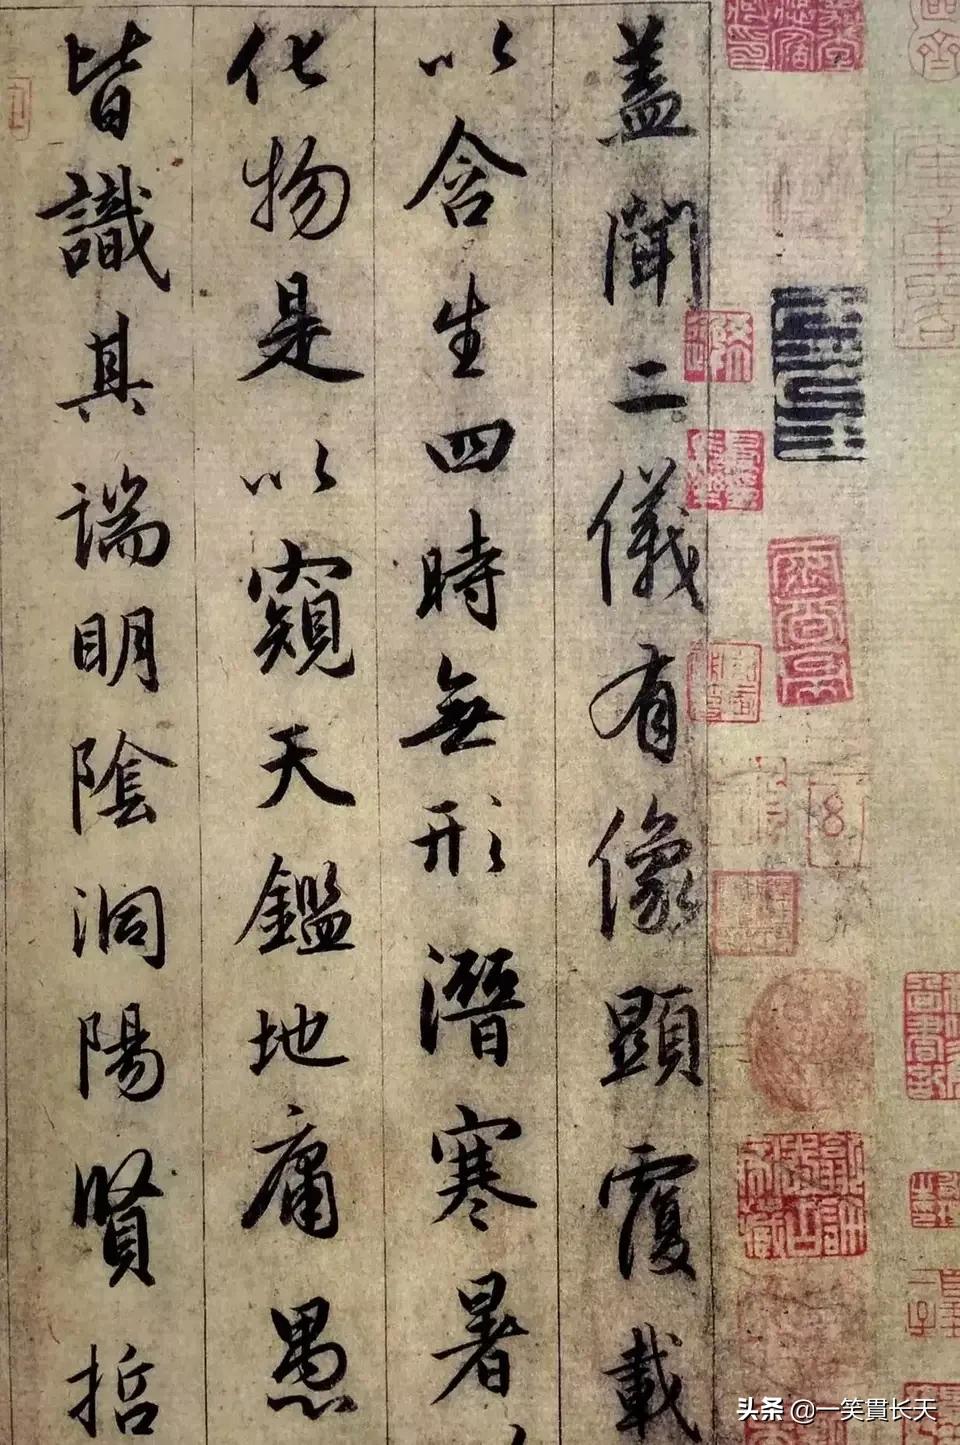 蓋聞二儀有像顯覆載
以含生四時無形潛寒暑
化物是以窺天鑑地庸愚
皆識其端明陰洞陽賢哲
头条 @一笑貫长天